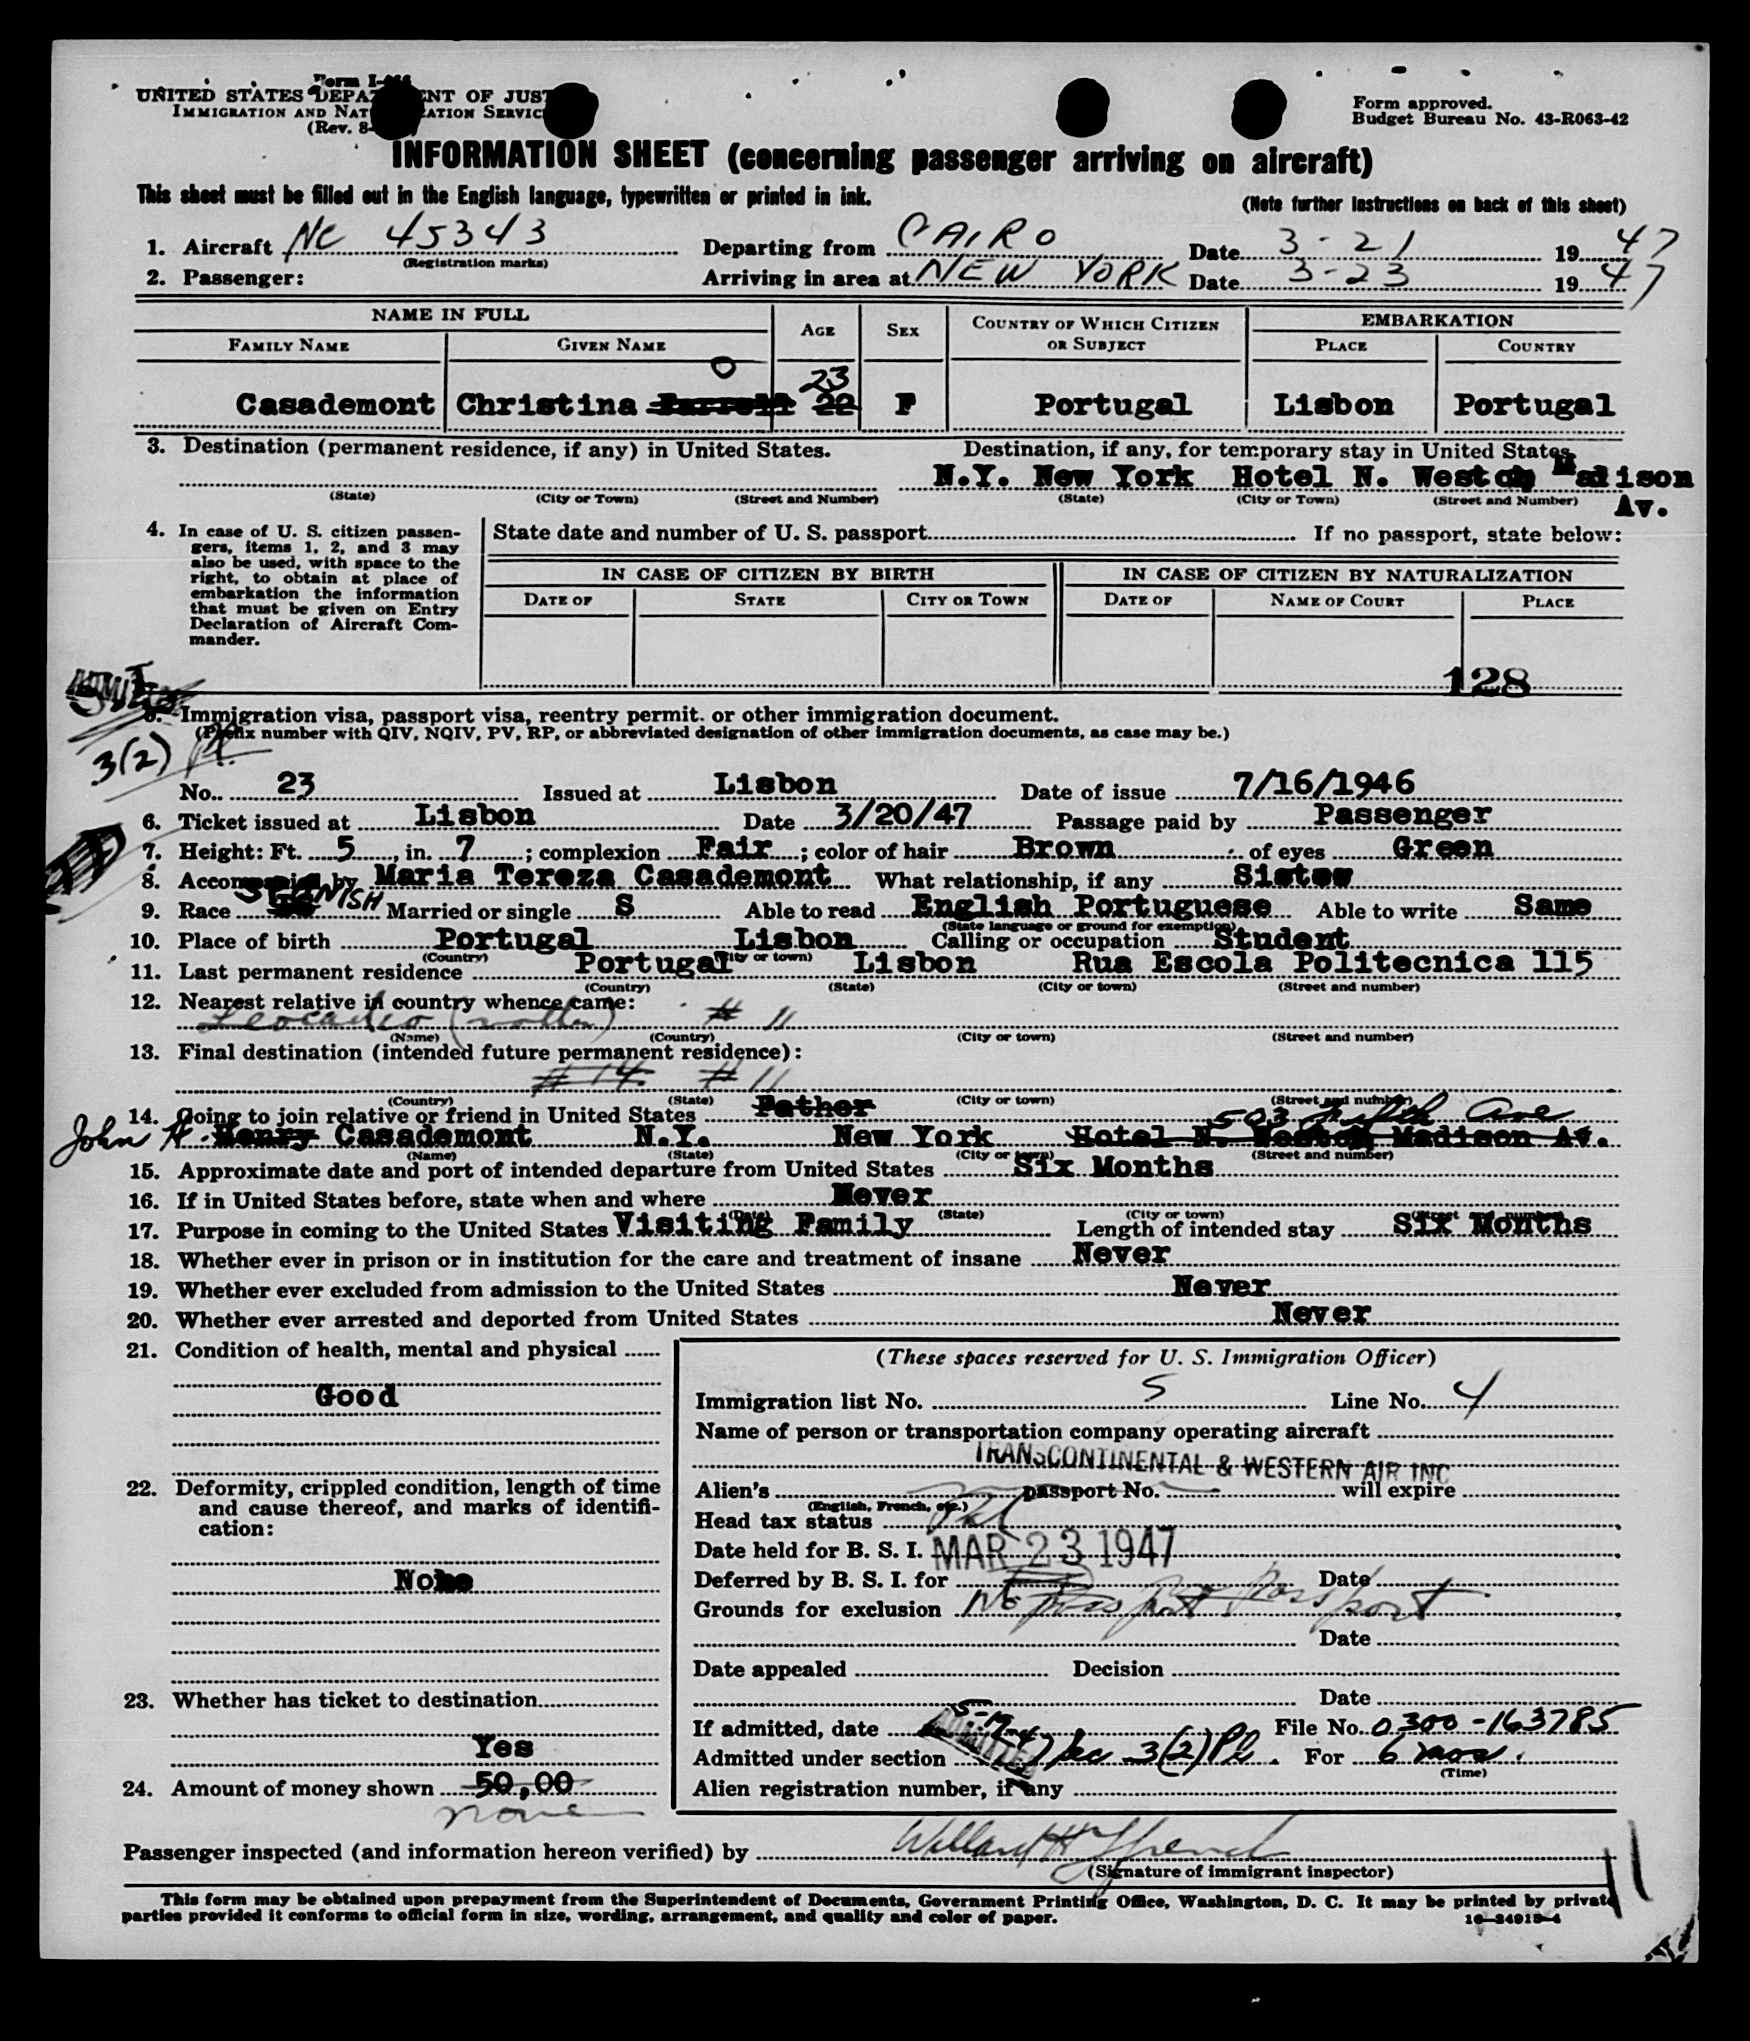 Form I-466
UNITED STATES DEPARTMENT OF JUSTICE
IMMIGRATION AND NATURALIZATION SERVICE
(Rev. 8-
Form approved.
Budget Bureau No. 43-R063-42
INFORMATION SHEET (concerning passenger arriving on aircraft)
This sheet must be filled out in the English language, typewritten or printed in ink.
(Note further instructions on back of this sheet)
1. Aircraft NC 45343 Departing from CAIRO Date 3-21 1947
(Registration marks)
2. Passenger: Arriving in area at NEW YORK Date 3-23 1947
NAME IN FULL AGE SEX COUNTRY OF WHICH CITIZEN OR SUBJECT EMBARKATION
FAMILY NAME GIVEN NAME PLACE COUNTRY
O 23
Casademont Christina Farrell 22 F Portugal Lisbon Portugal
3. Destination (permanent residence, if any) in United States. Destination, if any, for temporary stay in United States.
N.Y. New York Hotel N. Weston Madison Av.
(State) (City or Town) (Street and Number) (State) (City or Town) (Street and Number)
4. In case of U. S. citizen passengers, items 1, 2, and 3 may also be used, with space to the right, to obtain at place of embarkation the information that must be given on Entry Declaration of Aircraft Commander.
State date and number of U. S. passport If no passport, state below:
IN CASE OF CITIZEN BY BIRTH IN CASE OF CITIZEN BY NATURALIZATION
DATE OF STATE CITY OR TOWN DATE OF NAME OF COURT PLACE
128
5. Immigration visa, passport visa, reentry permit. or other immigration document.
(Prefix number with QIV, NQIV, PV, RP, or abbreviated designation of other immigration documents, as case may be.)
3(2)
No. 23 Issued at Lisbon Date of issue 7/16/1946
6. Ticket issued at Lisbon Date 3/20/47 Passage paid by Passenger
7. Height: Ft. 5, in. 7; complexion Fair; color of hair Brown of eyes Green
8. Accompanied by Maria Tereza Casademont What relationship, if any Sister
9. Race SPANISH Married or single S Able to read English Portuguese Able to write Same
(State language or ground for exemption)
10. Place of birth Portugal Lisbon Calling or occupation Student
(Country) (City or town)
11. Last permanent residence Portugal Lisbon Rua Escola Politecnica 115
(Country) (State) (City or town) (Street and number)
12. Nearest relative in country whence came:
Leocadio (mother) # 11
(Name) (Country) (City or town) (Street and number)
13. Final destination (intended future permanent residence):
# 14 # 11
(Country) (State) (City or town) (Street and number)
14. Going to join relative or friend in United States Father 503 Fifth Ave
John H. Henry Casademont N.Y. New York Hotel N. Weston Madison Av.
(Name) (State) (City or town) (Street and number)
15. Approximate date and port of intended departure from United States Six Months
16. If in United States before, state when and where Never
(Date) (State) (City or town) (Street and number)
17. Purpose in coming to the United States Visiting Family Length of intended stay Six Months
18. Whether ever in prison or in institution for the care and treatment of insane Never
19. Whether ever excluded from admission to the United States Never
20. Whether ever arrested and deported from United States Never
21. Condition of health, mental and physical
Good
22. Deformity, crippled condition, length of time and cause thereof, and marks of identification:
None
23. Whether has ticket to destination
Yes
24. Amount of money shown 50,00
none
(These spaces reserved for U. S. Immigration Officer)
Immigration list No. 5 Line No. 4
Name of person or transportation company operating aircraft
TRANSCONTINENTAL & WESTERN AIR INC
Alien's passport No. will expire
(English, French, etc.)
Head tax status
Date held for B. S. I. MAR 23 1947
Deferred by B. S. I. for Date
Grounds for exclusion No Passport
Date
Date appealed Decision
Date
If admitted, date 5-19-47 File No. 0300-163785
Admitted under section Sec 3(2) For 6 mos.
(Time)
Alien registration number, if any
Passenger inspected (and information hereon verified) by Willard H
(Signature of immigrant inspector)
This form may be obtained upon prepayment from the Superintendent of Documents, Government Printing Office, Washington, D. C. It may be printed by private
parties provided it conforms to official form in size, wording, arrangement, and quality and color of paper.
16-34915-4
11